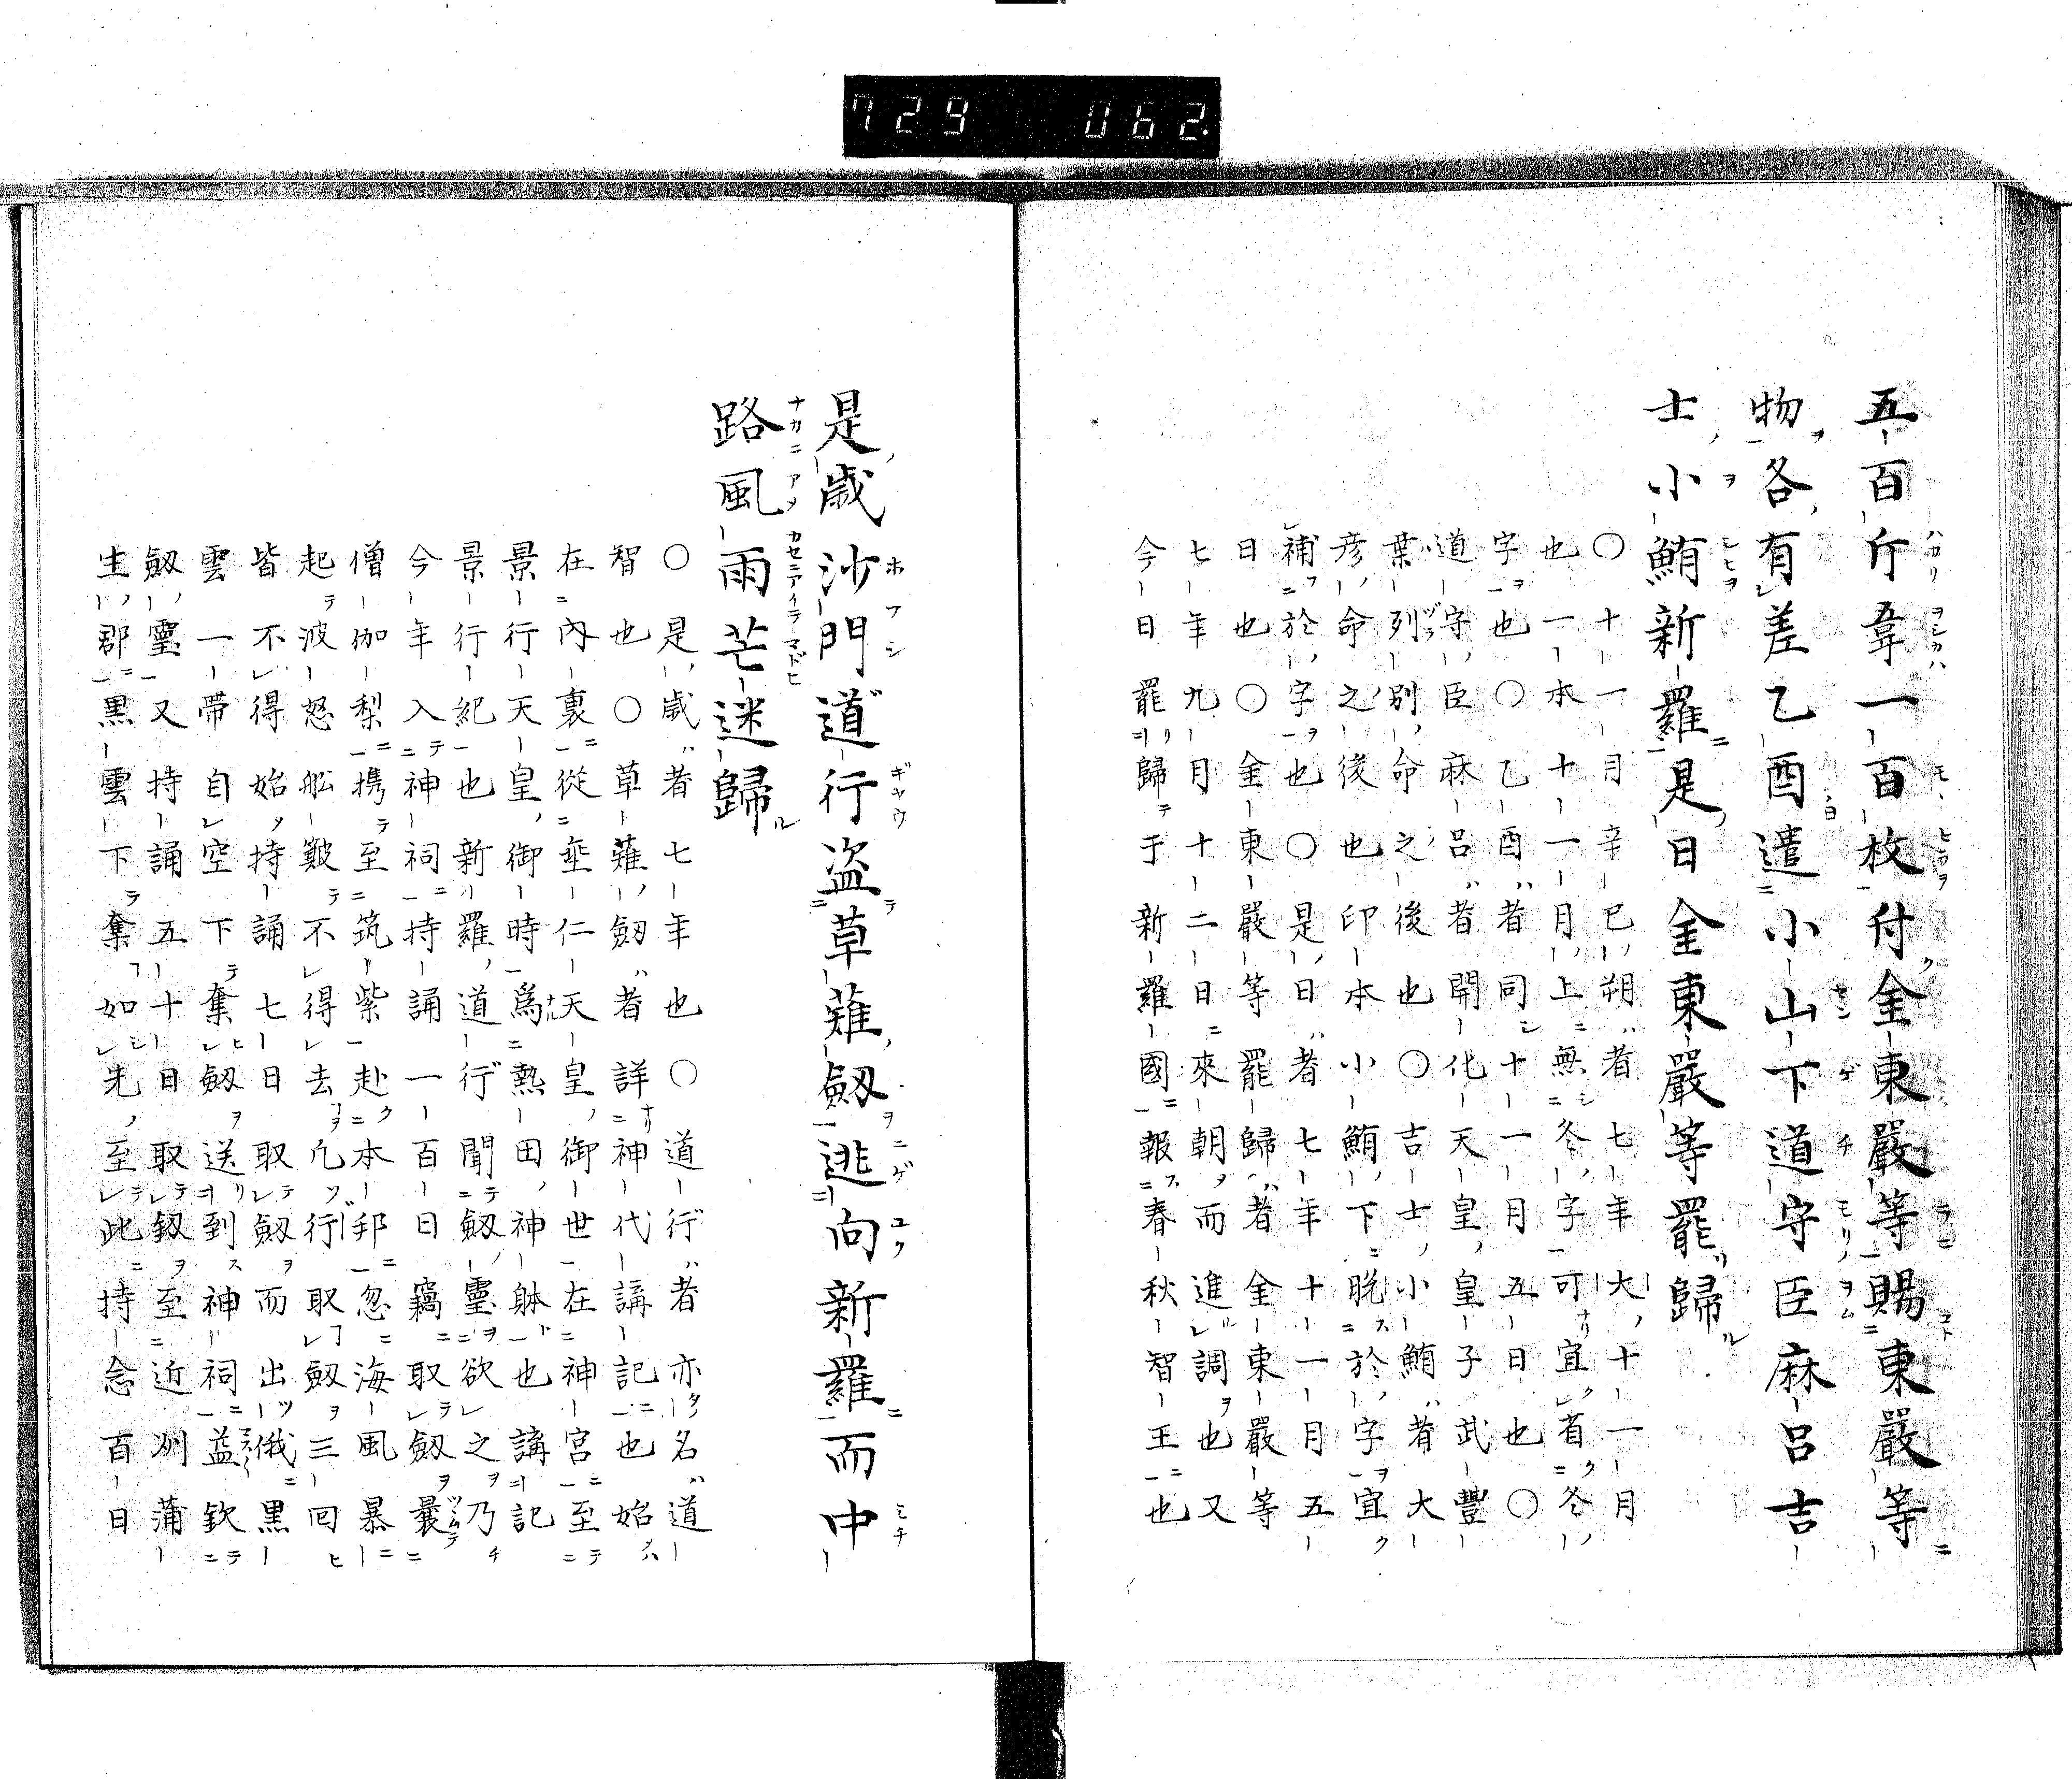 729 062.
五百斤韋一百枚付金東嚴等賜東嚴等
物各有差乙酉遣小山下道守臣麻呂吉
士小鮪新羅是日金東嚴等罷歸
〇十一月辛巳朔者七年大十一月
也一本十一月上無冬字可宜省冬
字也〇乙酉者同十一月五日也〇
道守臣麻呂者開化天皇皇子武豐
葉列別命之後也〇吉士小鮪者大
彦命之後也印本小鮪下脱於字宜
補於字也〇是日者七年十一月五
日也〇金東嚴等罷歸者金東嚴等
七年九月十二日來朝而進調也又
今日罷歸于新羅國報春秋智王也
是歳沙門道行盗草薙劔逃向新羅而中
路風雨芒迷歸
〇是歳者七年也〇道行者亦名道
智也〇草薙劔者詳神代講記也始
在内裏從埀仁天皇御世在神宮至
景行天皇御時爲熱田神躰也講記
景行紀也新羅道行聞劔靈欲之乃
今年入神祠持誦一百日竊取劔嚢
僧伽梨携至筑紫赴本邦忽海風暴
起波怒舩艱不得去凢行取劔三回
皆不得始持誦七日取劔而出俄黒
雲一帶自空下奪劔送到神祠益欽
劔靈又持誦五十日取釼至近州蒲
生郡黒雲下奪如先至此持念百日